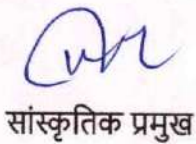 सांस्कृतिक प्रमुख